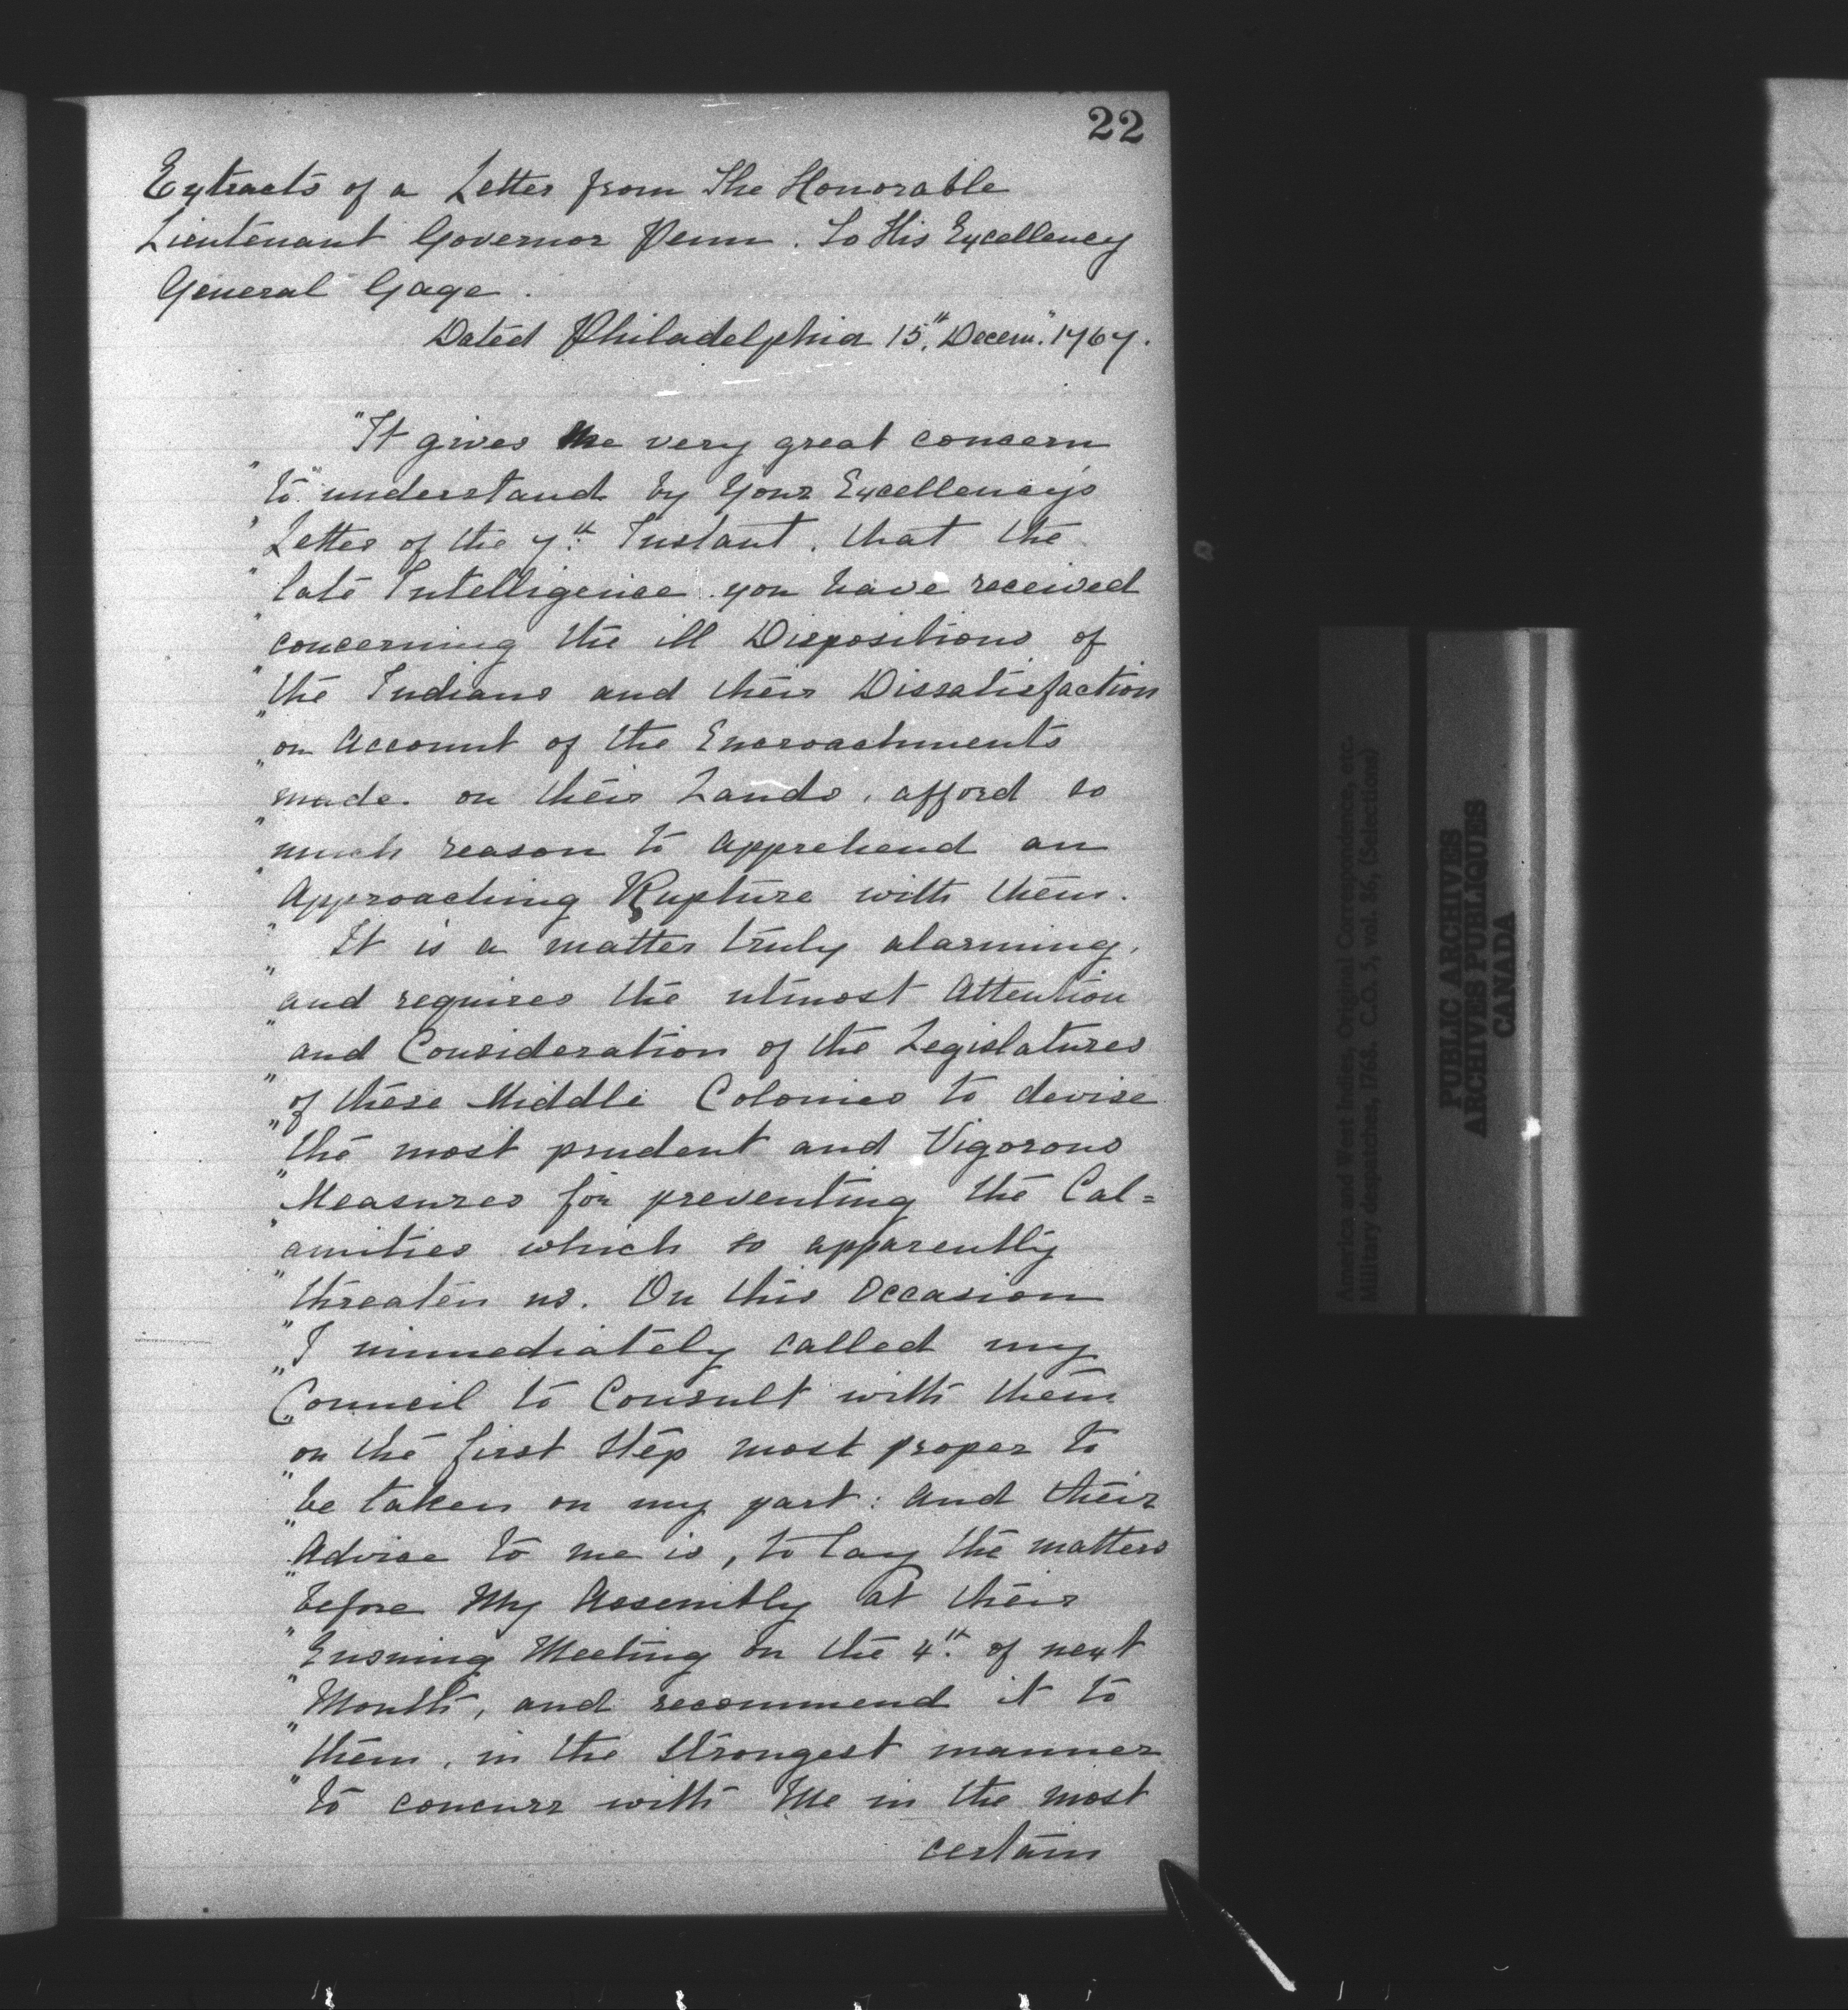 22
Extracts of a Letter from The Honorable
Lieutenant Governor Penn. To His Excellency
General Gage.
Dated Philadelphia 15th. Decem". 1767.
"It gives Me very great concern
" to" understand by Your Excellency's
" Letter of the 7th. Instant, that the
" late Intelligence you have received
" concerning the ill Dispositions of
" the Indians and their Dissatisfaction
" on Account of the Encroachments
" made on their Lands, afford so
" much reason to apprehend an
" Approaching Rupture with them.
" It is a matter truly alarming,
" and requires the utmost Attention
" and Consideration of the Legislatures
" of these Middle Colonies to devise
" the most prudent and Vigorous
" Measures for preventing the Cal=
" amities which so apparently
" threaten us. On this Occasion
" I immediately called my
" Council to Consult with them
" on the first Step most proper to
" be taken on my part: and their
" Advise to me is, to lay the matters
" before My Assembly at their
" Ensuing Meeting on the 4th. of next
" Month, and recommend it to
" them, in the Strongest manner
" to concurr with Me in the most
certain
America and West Indies, Original Correspondence, etc.
Military despatches, 1768. C.O. 5, vol. 86, (Selections)
PUBLIC ARCHIVES
ARCHIVES PUBLIQUES
CANADA